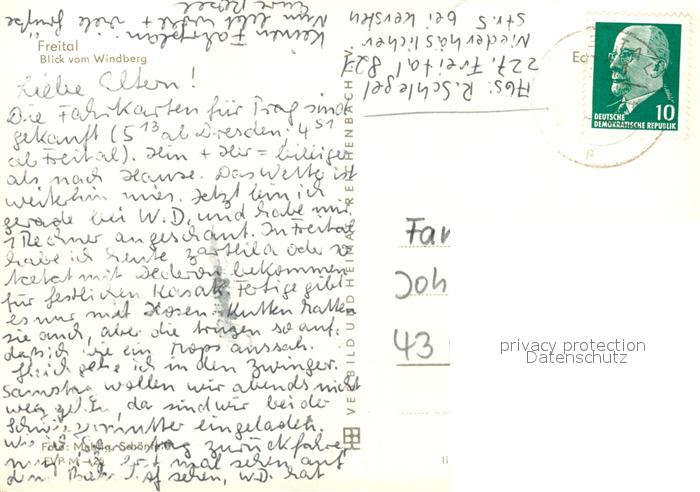 Freital
Blick vom Windberg
Liebe Eltern!
Die Fahrkarten für Prag sind
gekauft (5 13 ab Dresden; 4 51
ab Freital). Hin + Her = billiger
als nach Hause. Das Wetter ist
weiterhin mies. Jetzt bin ich
gerade bei W.D. und habe mir
1 Rechner angeschaut. In Freital
habe ich heute zartlila
mit Dederon bekommen
für festlichen Kasak. Fertige gibt
es nur mit Hosen. Kutten hatten
sie auch, aber die tragen so auf,
daß ich wie ein Mops aussah.
Gleich gehe ich in den Zwinger.
Samstag wollen wir abends nicht
weg gehen, da sind wir bei der
Schwiegermutter eingeladen.
Wie ich zurückfahre,
muß ich erst mal sehen auf
dem Bahnhof sehen, W.D. hat
keinen Fahrplan. viele Grüße
Nun lebt wohl +
Eure
Foto: Schönf
VERLAG BILD UND HEIMAT REICHENBACH I. V.
Abs: R. Schlegel
227 Freital 827
Niederhäslicher
Str. 5 bei Kersten
DEUTSCHE
DEMOKRATISCHE REPUBLIK
10
Fam
Joh
43
privacy protection
Datenschutz